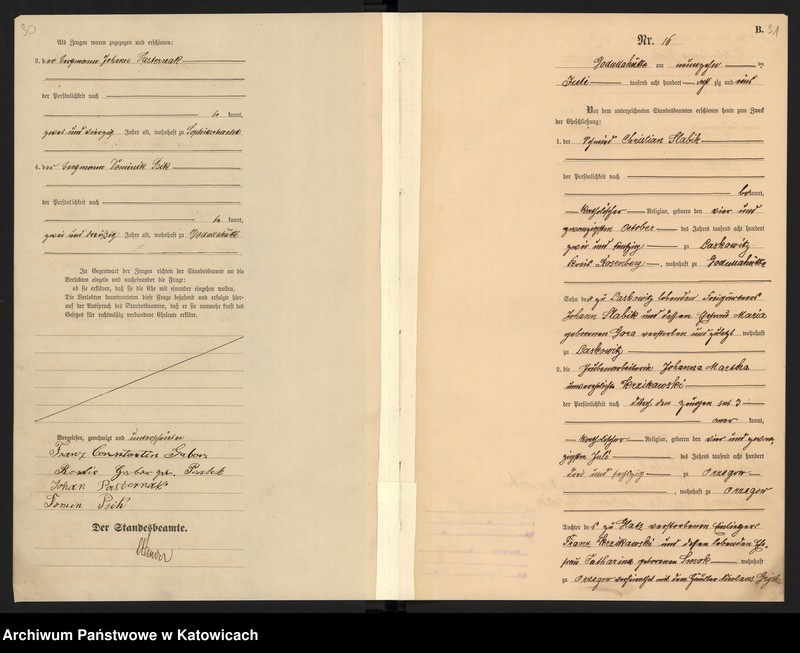 30
Als Zeugen waren zugezogen und erschienen:
3. der Bergmann Johann Pasternak
der Persönlichkeit nach
be kannt,
zwei und vierzig Jahre alt, wohnhaft zu Sophienschacht
4. der Bergmann Dominik Psik
der Persönlichkeit nach
be kannt,
zwei und dreißig Jahre alt, wohnhaft zu Godullahütte
In Gegenwart der Zeugen richtete der Standesbeamte an die
Verlobten einzeln und nacheinander die Frage:
ob sie erklären, daß sie die Ehe mit einander eingehen wollen.
Die Verlobten beantworteten diese Frage bejahend und erfolgte hier-
auf der Ausspruch des Standesbeamten, daß er sie nunmehr kraft des
Gesetzes für rechtmäßig verbundene Eheleute erkläre.
Vorgelesen, genehmigt und unterschrieben
Franz Constantin Gabor
Gabor geb.
Johan Pasternak
Domin Psik
Der Standesbeamte.
B. 31
Nr. 16
Godullahütte am neunzehn ten
Juli tausend acht hundert acht zig und
Vor dem unterzeichneten Standesbeamten erschienen heute zum Zweck
der Eheschließung:
1. der Schmied Christian Slabik
der Persönlichkeit nach
be kannt,
katholischer Religion, geboren den vier und
zwanzigsten October des Jahres tausend acht hundert
zwei und fünfzig zu Laskowitz
Kreis Rosenberg, wohnhaft zu Godullahütte
Sohn des zu Laskowitz lebenden
Johann Slabik und dessen Ehefrau Maria
geborenen Gora verstorben und zuletzt wohnhaft
zu Laskowitz
2. die Hüttenarbeiterin Johanna Martha
unverehelichte Skrzikawski
der Persönlichkeit nach durch den Zeugen sub 3
aner kannt,
katholischer Religion, geboren den vier und zwan-
zigsten Juli des Jahres tausend acht hundert
drei und sechzig zu Orzegow
, wohnhaft zu Orzegow
Tochter des zu Glatz verstorbenen Einliegers
Franz Skrzikawski und dessen lebenden Ehe-
frau Catharina geborenen Smok wohnhaft
zu Orzegow verheirathet mit dem Häusler Nicolaus
Archiwum Państwowe w Katowicach